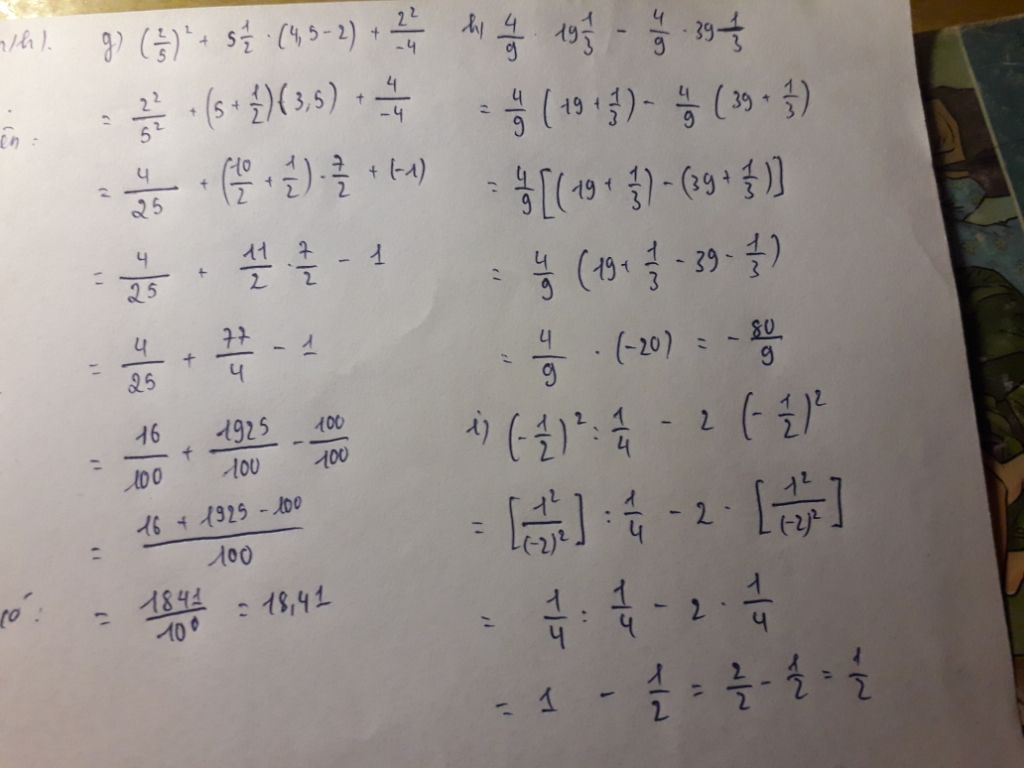 g) (2/5)² + 5 1/2 · (4,5-2) + 2²/-4
= 2²/5² + (5 + 1/2)(3,5) + 4/-4
= 4/25 + (10/2 + 1/2) · 7/2 + (-1)
= 4/25 + 11/2 · 7/2 - 1
= 4/25 + 77/4 - 1
= 16/100 + 1925/100 - 100/100
= (16 + 1925 - 100)/100
= 1841/100 = 18,41
h) 4/9 · 19 1/3 - 4/9 · 39 1/3
= 4/9 (19 + 1/3) - 4/9 (39 + 1/3)
= 4/9 [(19 + 1/3) - (39 + 1/3)]
= 4/9 (19 + 1/3 - 39 - 1/3)
= 4/9 · (-20) = - 80/9
i) (- 1/2)² : 1/4 - 2 (- 1/2)²
= [1²/(-2)²] : 1/4 - 2 · [1²/(-2)²]
= 1/4 : 1/4 - 2 · 1/4
= 1 - 1/2 = 2/2 - 1/2 = 1/2